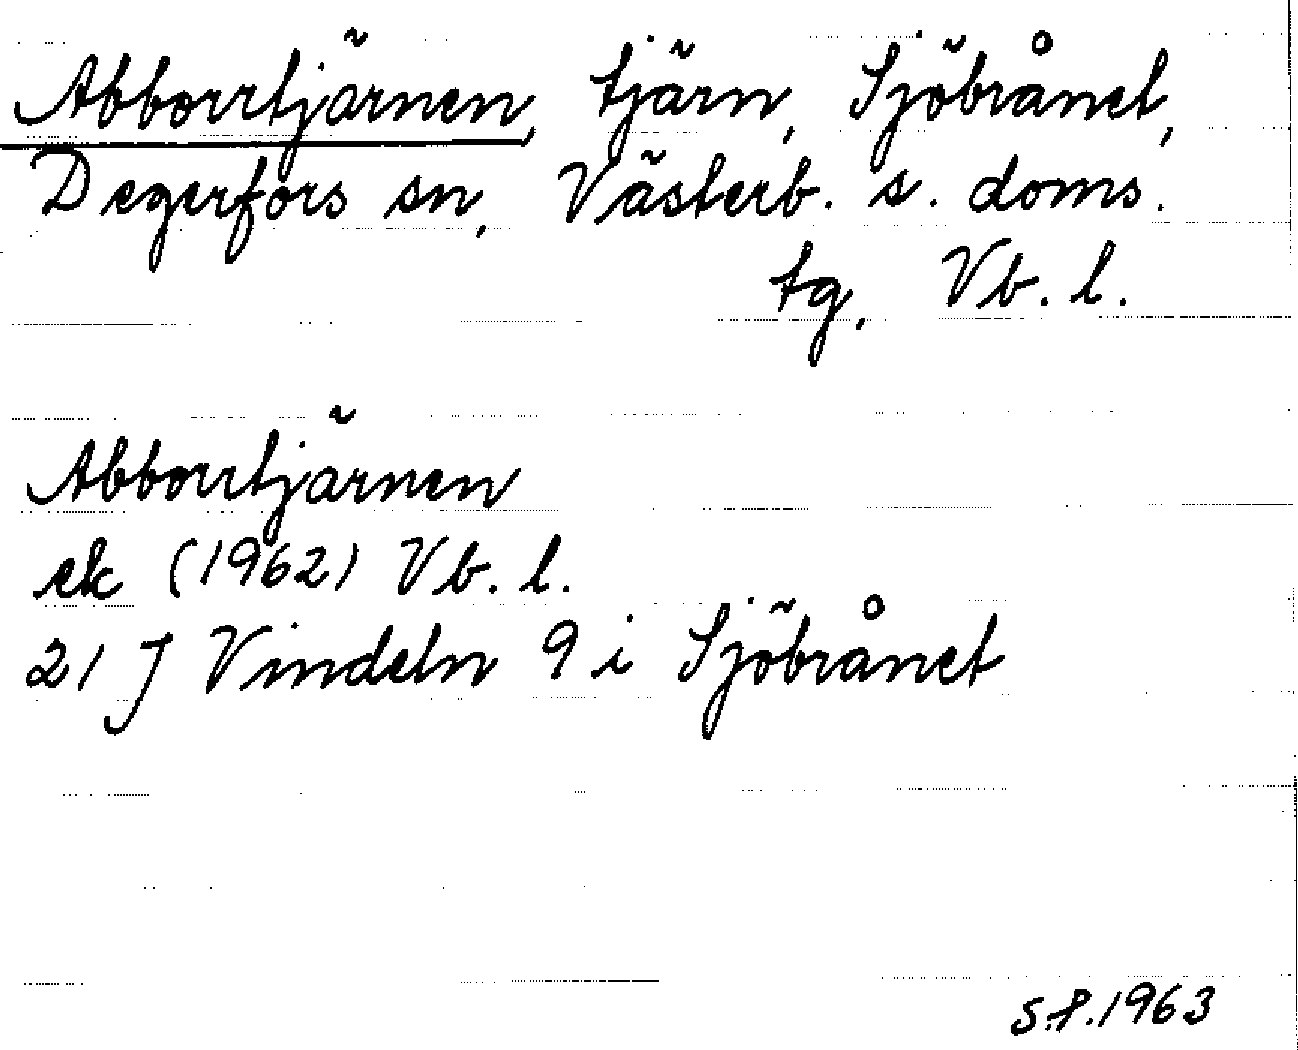 Abborrtjärnen, tjärn, Sjöbrånet,
Degerfors sn, Västerb. s. doms.
tg, Vb. l.
Abborrtjärnen
ek (1962) Vb. l.
21 J Vindeln 9 i Sjöbrånet
S.P. 1963